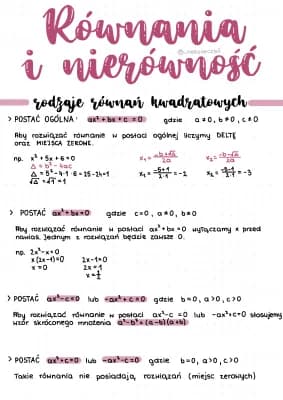 Równania
i nierówność
rodzaje równań kwadratowych
> POSTAĆ OGÓLNA: ax²+bx+c=0 gdzie a≠0, b≠0, c≠0
Aby rozwiązać równanie w postaci ogólnej liczymy DELTĘ
oraz MIEJSCA ZEROWE.
np. x²+5x+6=0 x₁=-b+√Δ/2a x₂=-b-√Δ/2a
Δ=b²-4ac
Δ=5²-4·1·6=25-24=1 x₁=-5+1/2·1=-2 x₂=-5-1/2·1=-3
√Δ=√1=1
> POSTAĆ ax²+bx=0 gdzie c=0, a≠0, b≠0
Aby rozwiązać równanie w postaci ax²+bx=0 wyłączamy x przed
nawias. Jednym z rozwiązań będzie zawsze 0.
np. 2x²-x=0
x(2x-1)=0 2x-1=0
x=0 2x=1
x=1/2
> POSTAĆ ax²-c=0 lub -ax²+c=0 gdzie b=0, a>0, c>0
Aby rozwiązać równanie w postaci ax²-c=0 lub -ax²+c=0 stosujemy
wzór skróconego mnożenia a²-b²=(a-b)(a+b)
> POSTAĆ ax²+c=0 lub -ax²-c=0 gdzie b=0, a>0, c>0
Takie równania nie posiadają rozwiązań (miejsc zerowych)